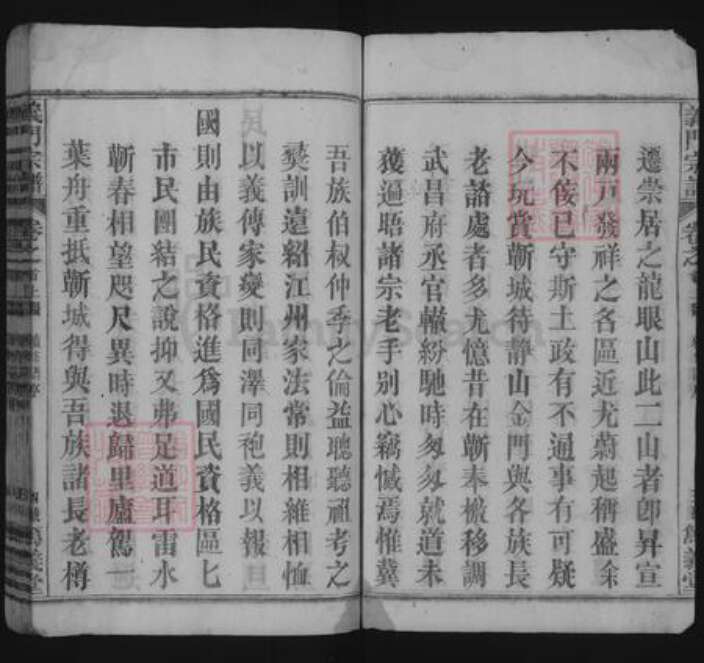 遷崇居之龍眼山此二山者卽昇宣
兩戸發祥之各區近尤蔚起稱盛余
不佞已守斯土政有不逼事有可疑
今玩賞蘄城待靜山金門與各族長
老諮處者多尤憶昔在蘄奉檄移調
武昌府丞官轍紛馳時匆匆就道未
獲逼晤諸宗老手别心竊憾焉惟冀
吾族伯叔仲季之倫益聰聽祖考之
彜訓遠紹江州家法常則相維相恤
以義傳家變則同澤同袍義以報
國則由族民資格進爲國民資格區七
市民團結之說抑又弗足道耳雷水
蘄春相望咫尺異時退歸里廬駕一
葉舟重抵蘄城得與吾族諸長老樽
義門宗譜
卷之
義門宗譜
卷之
FamilySearch